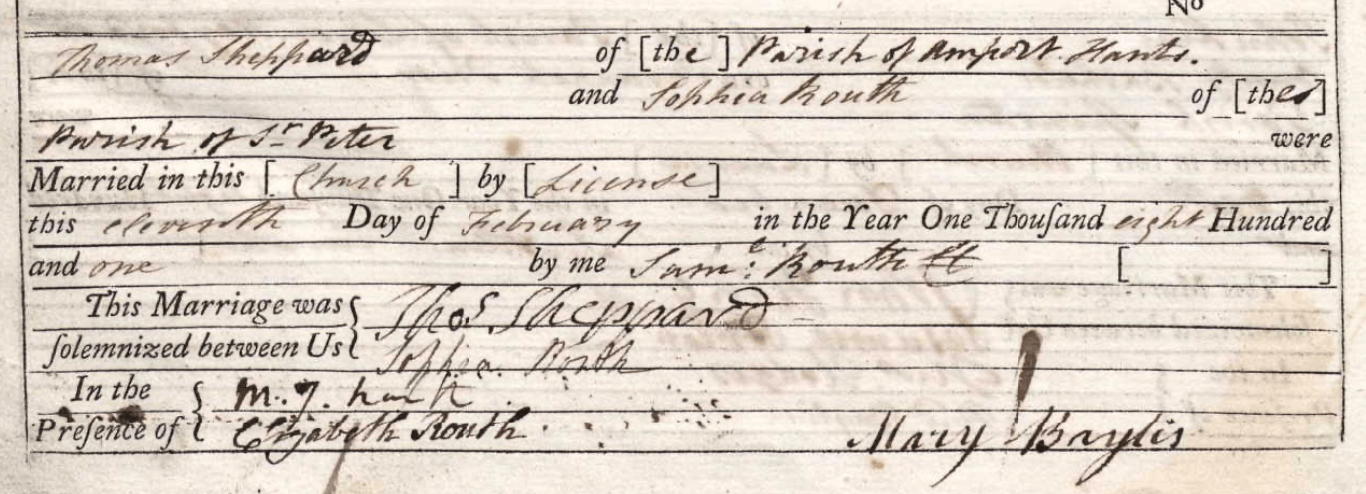 No
Thomas Sheppard of [the ] Parish of Amport Hants.
and Sophia Routh of [the]
Parish of Sr. Peter were
Married in this [ Church ] by [License]
this eleventh Day of February in the Year One Thouſand eight Hundred
and one by me Saml: Routh [ ]
This Marriage was { Thos. Sheppard
ſolemnized between Us { Sophia Routh
In the { M. J.
Preſence of { Elizabeth Routh Mary Baylis